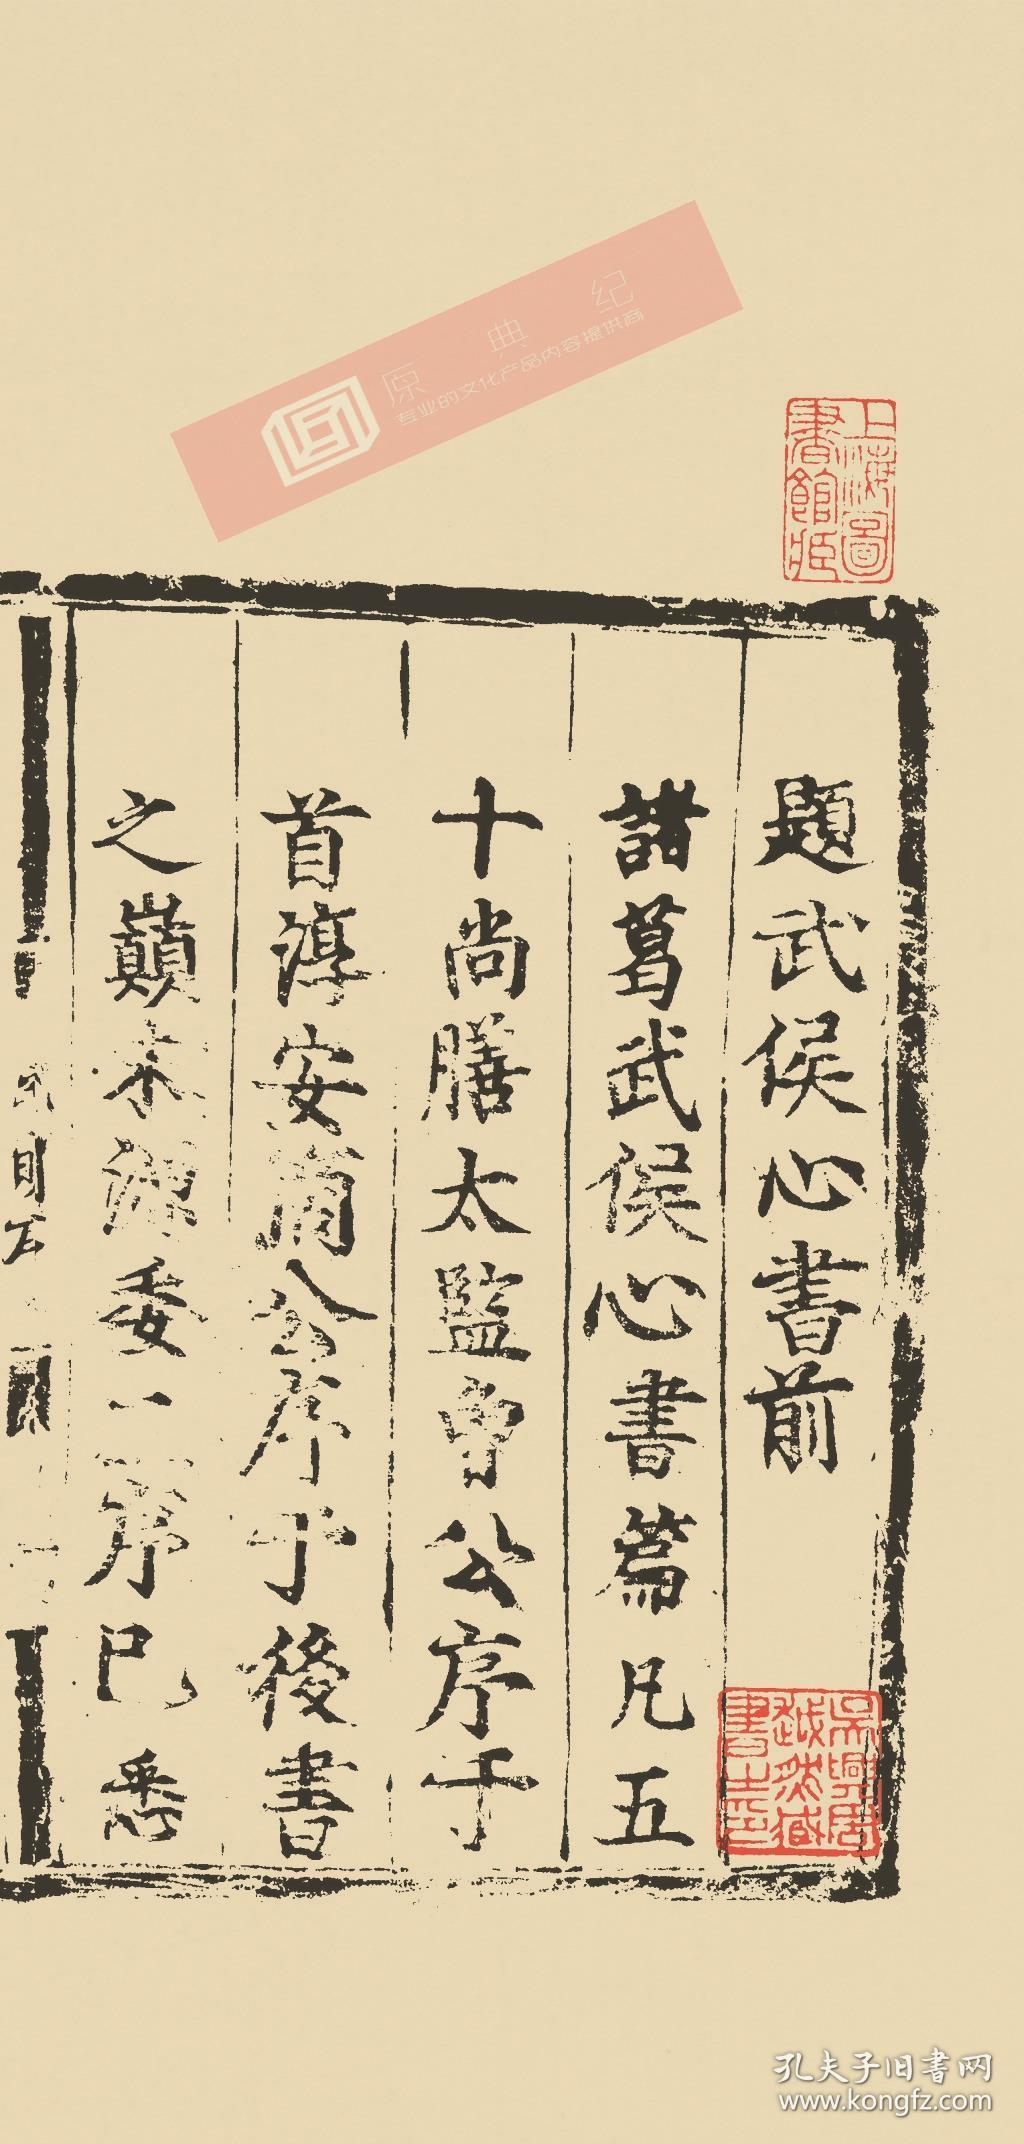 題武侯心書前
諸葛武侯心書篇凡五
十尚膳太監曾公序于
首淳安商公序于後書
之巔末源委二序已悉
上海圖
書館藏
吳興周
越然藏
書之印
原典纪
专业的文化产品内容提供商
孔夫子旧书网
www.kongfz.com